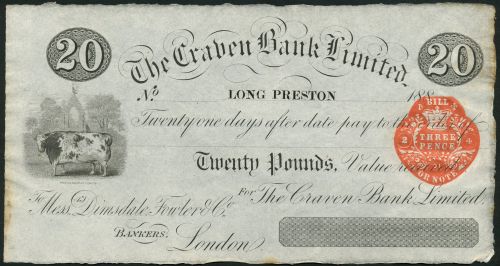 20 The Craven Bank Limited. 20
No LONG PRESTON 188
Twenty one days after date pay to the
Twenty Pounds, Value received
For The Craven Bank Limited,
To Messrs Dimsdale, Fowler & Co.
BANKERS, London
BILL
2 THREE 4
PENCE
OR NOTE